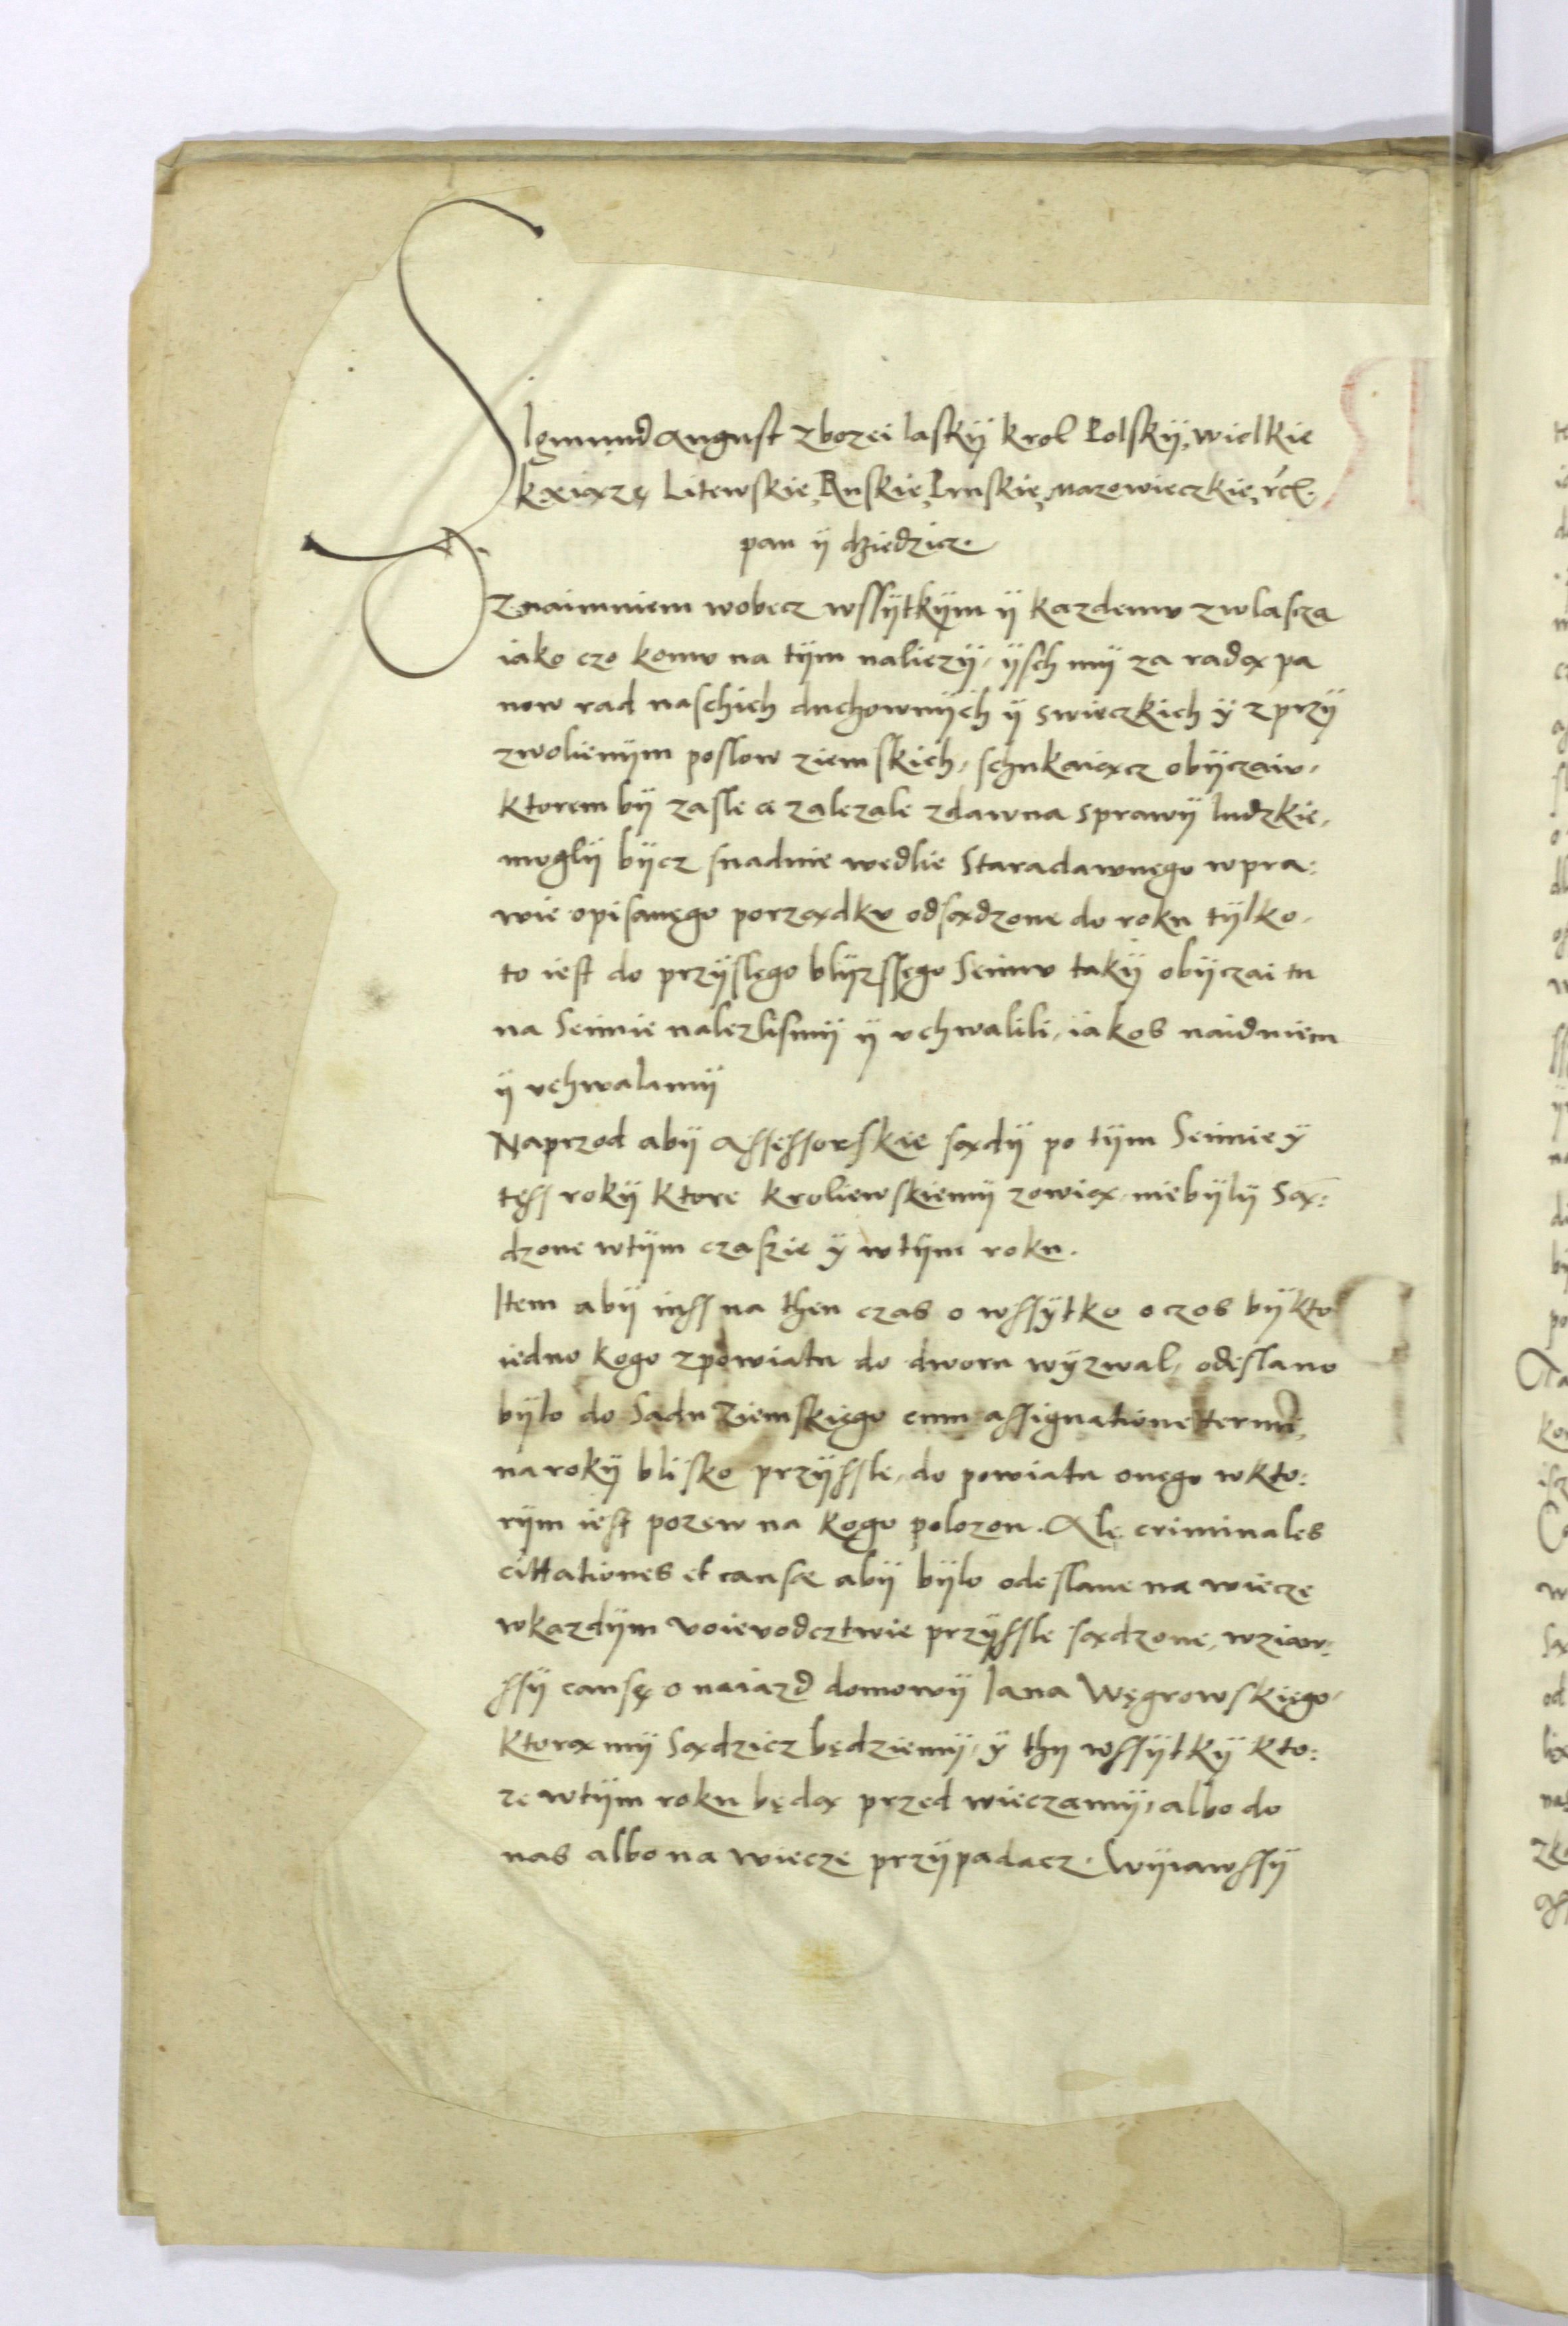 Sigmund August zbozei lasky krol Polsky, wielkie
kxiążę Litewskie, Ruskie, Pruskie, mazowieczkie, rcl.
pan ÿ dziedzicz.
Oznaimuiem wobecz wssÿtkÿm ÿ kazdemv zwlascza
iako czo komv na tÿm naliezÿ, ÿsch mÿ za radą pa
now rad naschich duchownÿch ÿ swieczkich ÿ zprzÿ
zwolienÿm poslow ziemskich, schukaiącz obÿczaiv,
ktorem bÿ zasle a zalezale zdawna sprawÿ ludzkie,
moglÿ bÿcz snadnie wedlie Staradawnego wpra:
wie opisanego porządkv odsądzone do roku tÿlko,
to iest do przÿslego blÿzssego Seimv takÿ obÿczai tu
na Seimie nalezlismÿ ÿ vchwalili, iakos naiduiem
ÿ vchwalamÿ
Naprzod abÿ Assessorskie sądÿ po tÿm Seimie ÿ
tess rokÿ ktore kroliewskiemÿ zowią, niebÿlÿ Są:
dzone wtÿm czaszie ÿ wtÿm roku.
Item abÿ inss na then czas o wssÿtko o czos bÿ kto
iedno kogo zpowiatu do dworu wÿzwal, odeslano
bÿlo do Sadu Ziemskiego cum assignatione termi,
na rokÿ blisko przÿssle, do powiatu onego wkto:
rÿm iest pozew na kogo polozon. Ale criminales
cittationes et causae abÿ bÿlo odeslane na wiecze
wkazdÿm voievodcztwie przÿssle sądzone, wziaw:
ssÿ causę o naiazd domowÿ Iana Węgrowskiego,
ktorą mÿ Sądzicz będziemÿ, ÿ thÿ wssÿtkÿ kto:
re wtÿm roku będą przed wieczamÿ, albo do
nas albo na wiecze przÿpadacz. Wÿiawssÿ